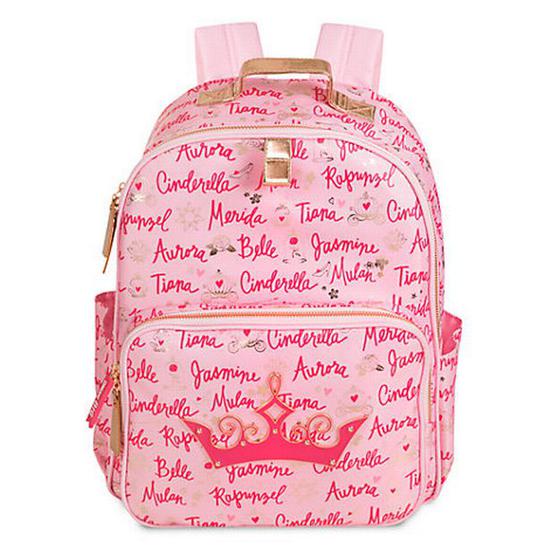 Tiana
Rapunzel Merida
Aurora Belle Jasmine
Cinderella Mulan Rapunzel
Rapunzel Merida Tiana Cinderella
Aurora Belle Jasmine
Tiana Cinderella Mulan
Tiana Cinderella
Belle Jasmine Aurora
Cinderella Mulan Tiana
Merida Rapunzel Merida
Belle Jasmine Aurora
Mulan Rapunzel Tiana